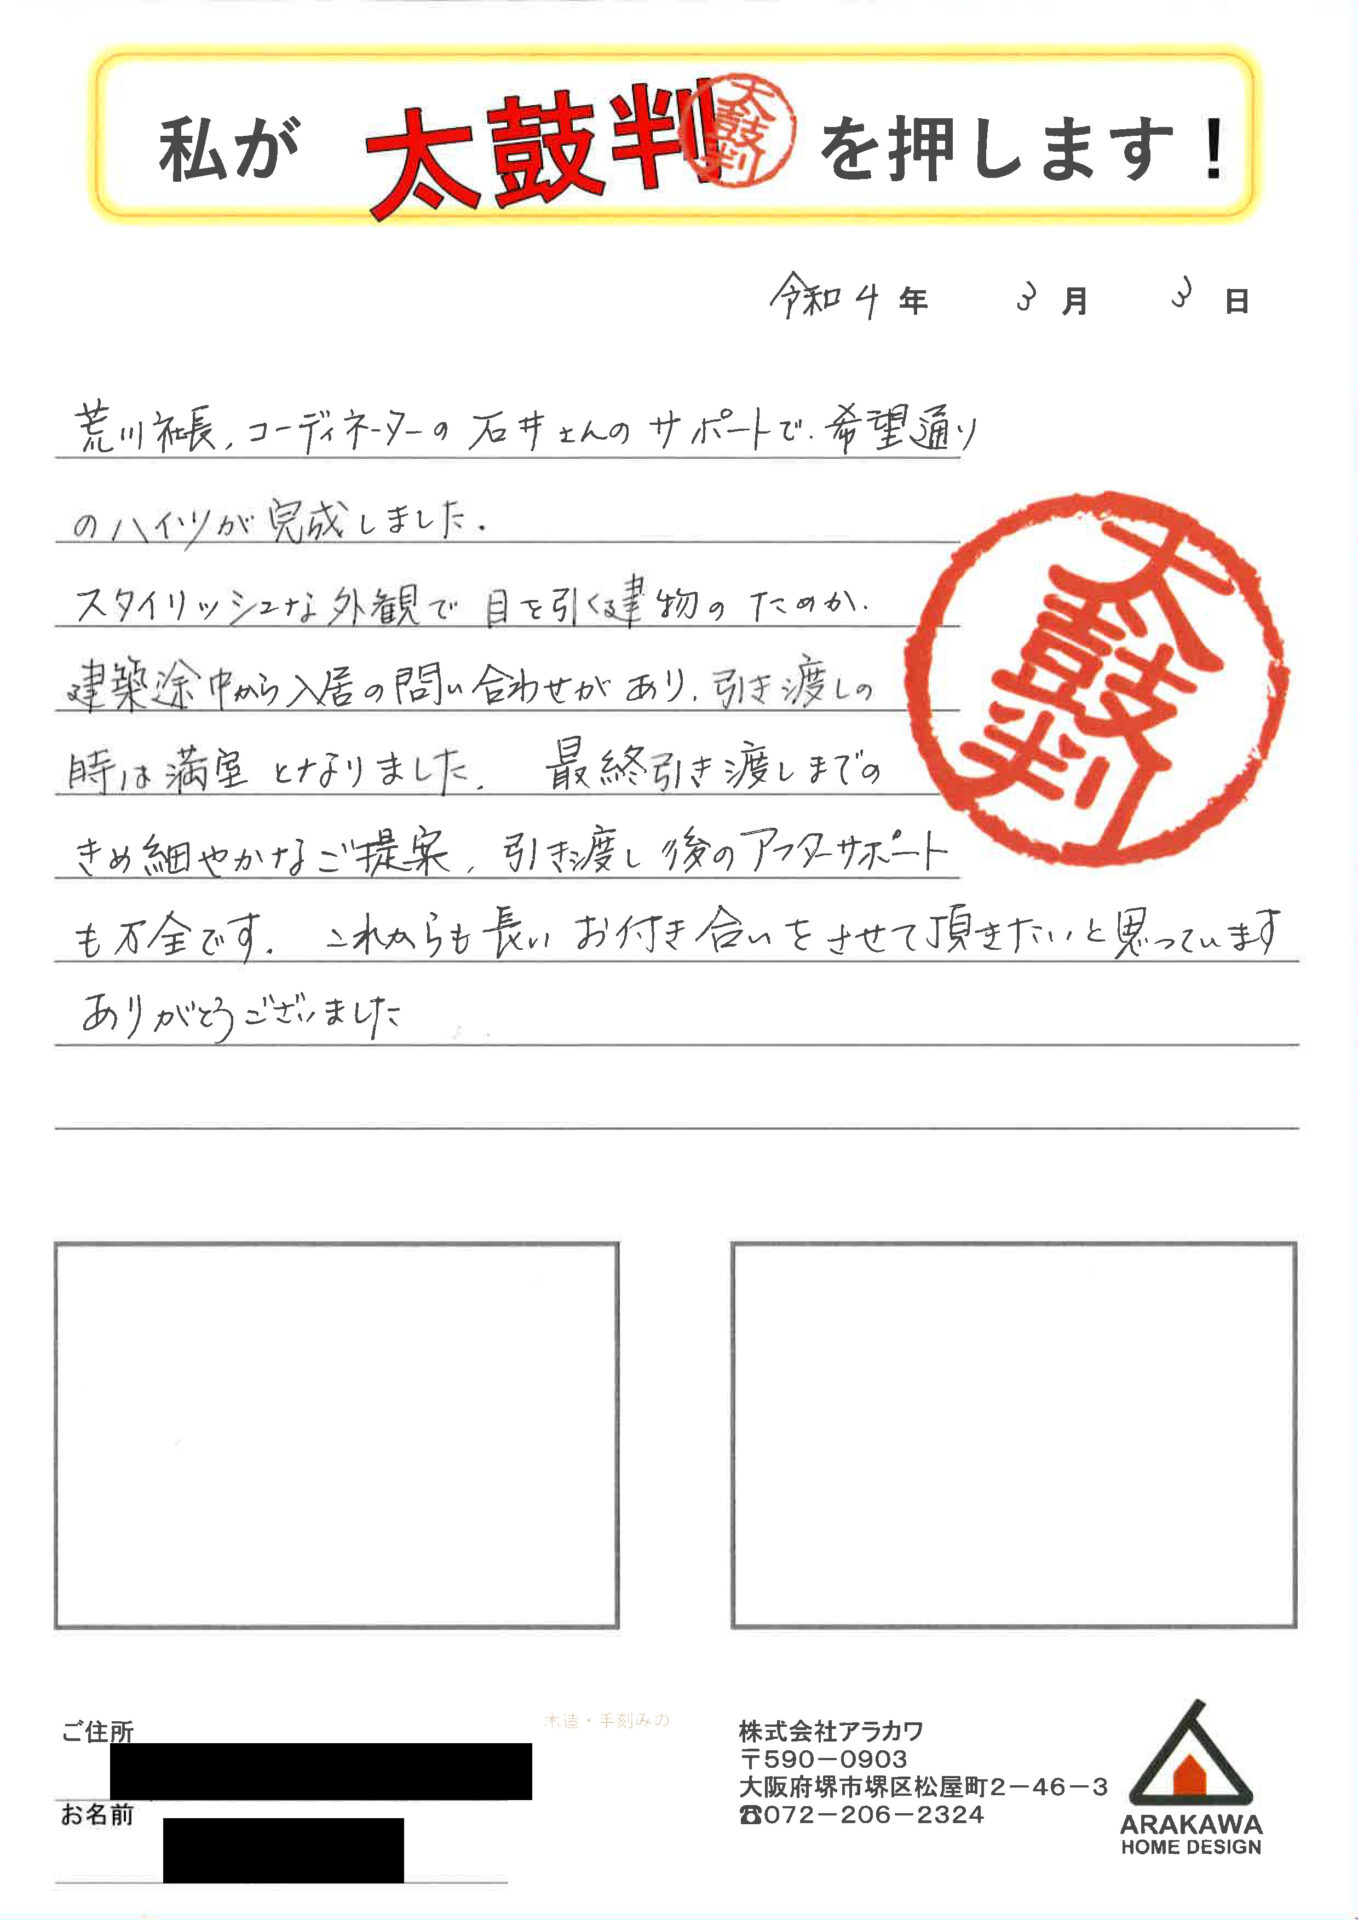 私が 太鼓判 太鼓判 を押します！
令和4年 3月 3日
荒川社長、コーディネーターの石井さんのサポートで、希望通り
のハイツが完成しました。
スタイリッシュな外観で目を引く建物のためか、
建築途中から入居の問い合わせがあり、引き渡しの
時は満室となりました。 最終引き渡しまでの
きめ細やかなご提案、引き渡し後のアフターサポート
も万全です。 これからも長いお付き合いをさせて頂きたいと思っています
ありがとうございました
太鼓判
ご住所
お名前
木造・手刻みの
株式会社アラカワ
〒590－0903
大阪府堺市堺区松屋町2－46－3
☎072－206－2324
ARAKAWA
HOME DESIGN